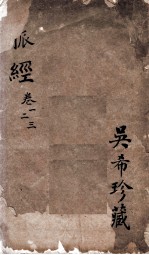 脉經
卷一二三
吳希珍藏